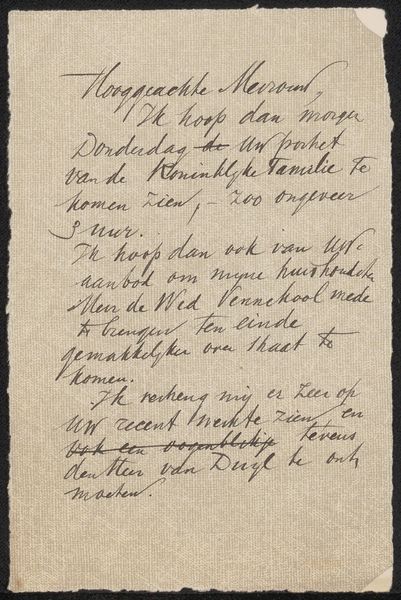 Hooggeachte Mevrouw,
Ik hoop dan morgen
Donderdag de Uw portret
van de Koninklijke Familie te
komen zien, - zoo ongeveer
3 uur.
Ik hoop dan ook van Uw
aanbod om mijne huishoudster
Mevr de Wed Vennekool mede
te brengen ten einde
gemakkelijker over straat te
komen.
Ik verheug mij er zeer op
Uw recent werk te zien en
ook een oogenblikje tevens
den Heer van Duyl te ont
moeten.